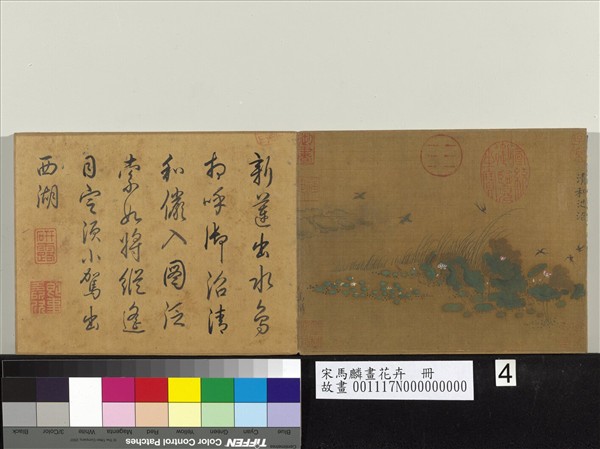 新蓮出水鳥
相呼御沼清
和儘入圖泛
索如將縱遙
目定須小駕出
西湖
宋馬麟畫花卉 冊
故畫 001117N000000000
4
Black
3/Color
White
Magenta
Red
Yellow
Green
Cyan
Blue
TIFFEN Color Control Patches